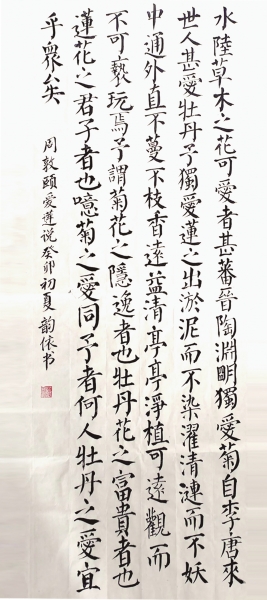 水陸草木之花可愛者甚蕃晉陶淵明獨愛菊自李唐來
世人甚愛牡丹予獨愛蓮之出淤泥而不染濯清漣而不妖
中通外直不蔓不枝香遠益清亭亭淨植可遠觀而
不可褻玩焉予謂菊花之隱逸者也牡丹花之富貴者也
蓮花之君子者也噫菊之愛同予者何人牡丹之愛宜
乎眾矣
周敦頤愛蓮说癸卯初夏韵依书